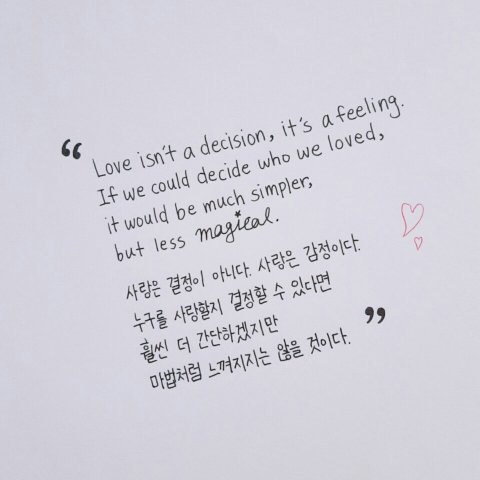 “Love isn't a decision, it's a feeling.
If we could decide who we loved,
it would be much simpler,
but less magical.
사랑은 결정이 아니다. 사랑은 감정이다.
누구를 사랑할지 결정할 수 있다면
훨씬 더 간단하겠지만
마법처럼 느껴지지는 않을 것이다.”